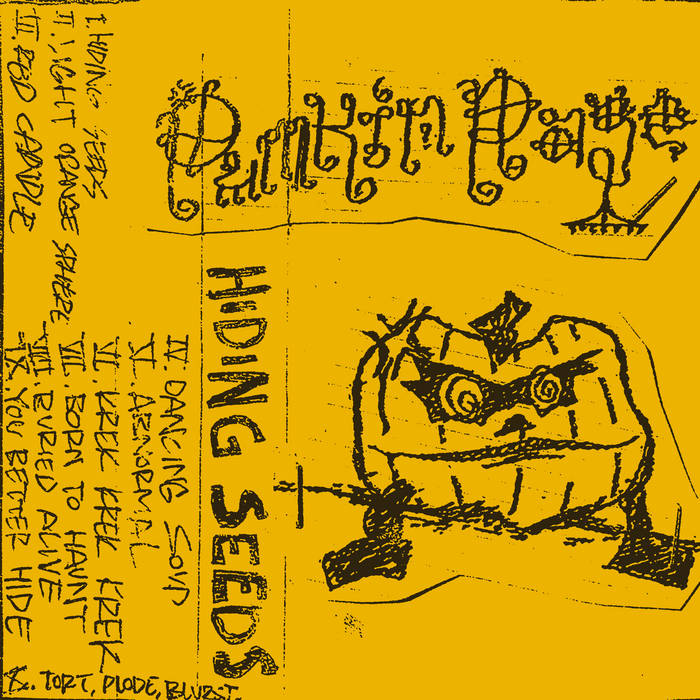 HiDING SEEDS
I. HIDING SEEDS
II. LIGHT ORANGE SPHERE
III. CANDLE
IV. DANCING SOUP
V. ABNORMAL
VI. KREK KREK KREK
VII. BORN TO HAUNT
VIII. BURIED ALIVE
IX. YOU BETTER HIDE
X. TORT, PLODE, BLURST.